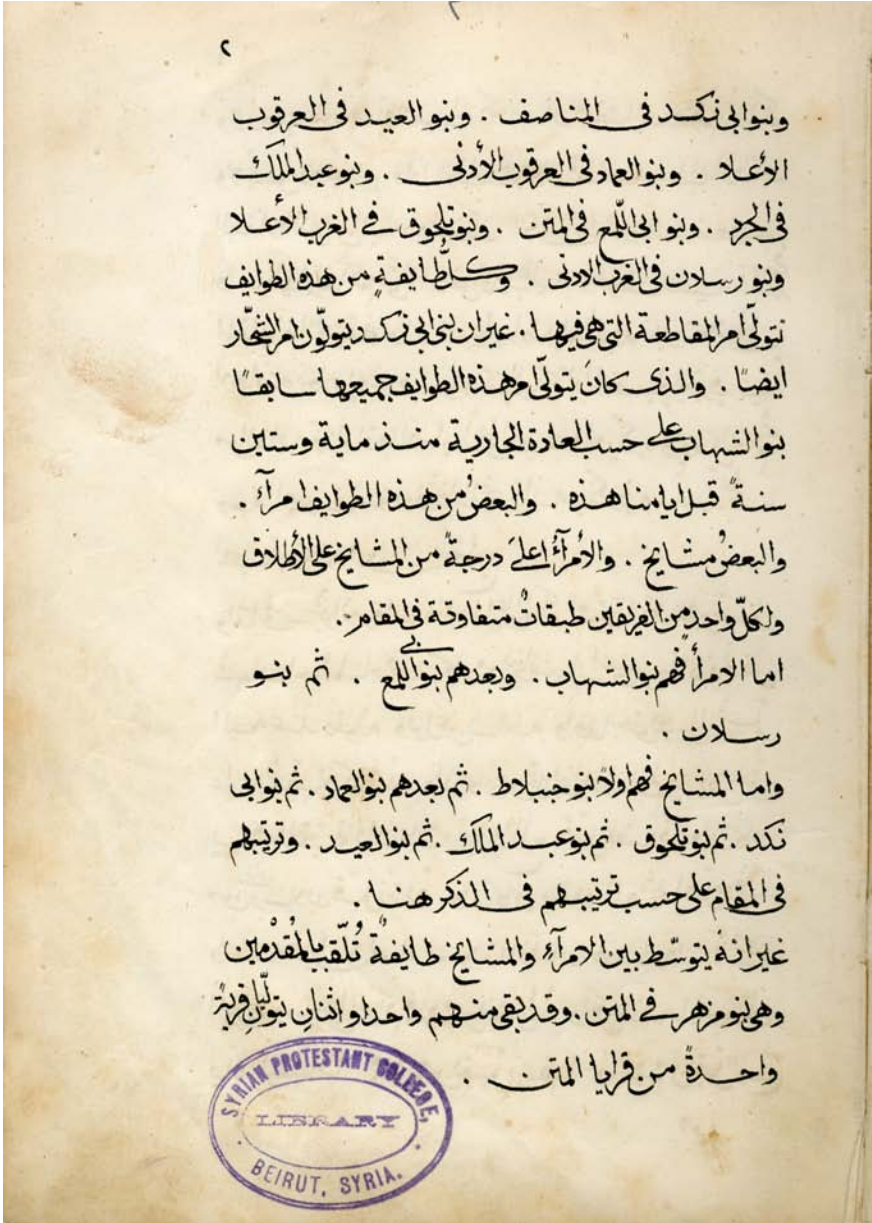 ٢
وبنوابى نكد فى المناصف . وبنو العيد فى العرقوب
الأعلا . وبنو العماد فى العرقوب الأدنى . وبنو عبد الملك
فى الجرد . وبنو ابى اللّمع فى المتن . وبنو تلحوق فى الغرب الأعلا
وبنو رسلان فى الغرب الادنى . وكلُّ طايفةٍ من هذه الطوايف
تتولّى امر المقاطعة التى هى فيها . غير ان بنى ابى نكد يتولّون امر الشحّار
ايضاً . والذى كانَ يتولّى امر هذه الطوايف جميعها سابقاً
بنو الشهاب على حسب العادة الجارية منذ ماية وستين
سنةً قبل ايامنا هذه . والبعضُ من هذه الطوايف امرآء .
والبعضُ مشايخ . والأمرآءُ اعلىَ درجةً من المشايخ على الأطلاق
ولكلّ واحدٍ من الفريقين طبقاتٌ متفاوتة فى المقام .
اما الامرأ فهم بنو الشهاب . وبعدهم بنو ابى اللمع . ثم بنو
رسلان .
واما المشايخ فهم اولاً بنو جنبلاط . ثم بعدهم بنو العماد . ثم بنوابى
نكد . ثم بنو تلحوق . ثم بنو عبد الملك . ثم بنو العيد . وترتيبهم
فى المقام على حسب ترتيبهم فى الذكر هنا .
غير انهُ يتوسّط بين الامرآءِ والمشايخ طايفةٌ تُلقّب بالمُقدّمين
وهى بنو مزهر فى المتن . وقد بقى منهم واحد او اثنانِ يتوليّانِ قريةً
واحدةً من قرايا المتن .
SYRIAN PROTESTANT COLLEGE,
LIBRARY
BEIRUT, SYRIA.